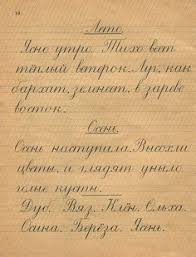 Лето.
Ясно утро. Тихо веет
тёплый ветерок. Луг, как
бархат, зеленеет, в зареве
восток.
Осень.
Осень наступила. Высохли
цветы, и глядят уныло
голые кусты.
Дуб. Вяз. Клён. Ольха.
Осина. Берёза. Ясень.